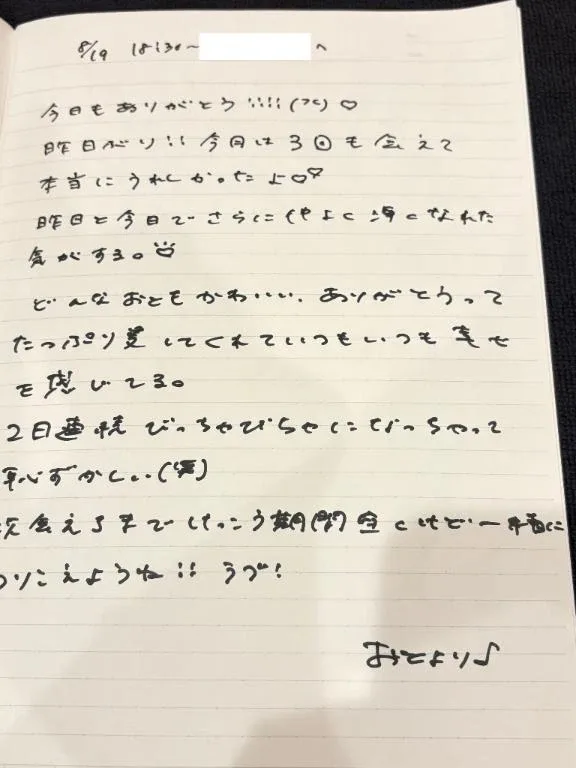 8/19 18:30〜 へ
今日もありがとう!!!!(>ε<)♡
昨日ぶり!!今月は3回も会えて
本当にうれしかったよ♡♡
昨日と今日でさらに なれた
気がする。
どんなおともかわいい、ありがとうって
たっぷり愛してくれていつもいつも幸せ
を感じてる。
2日連続びっちゃびちゃになっちゃって
恥ずかしい(笑)
次会えるまでけっこう期間空くけど一緒に
のりこえようね!!
おとより♪